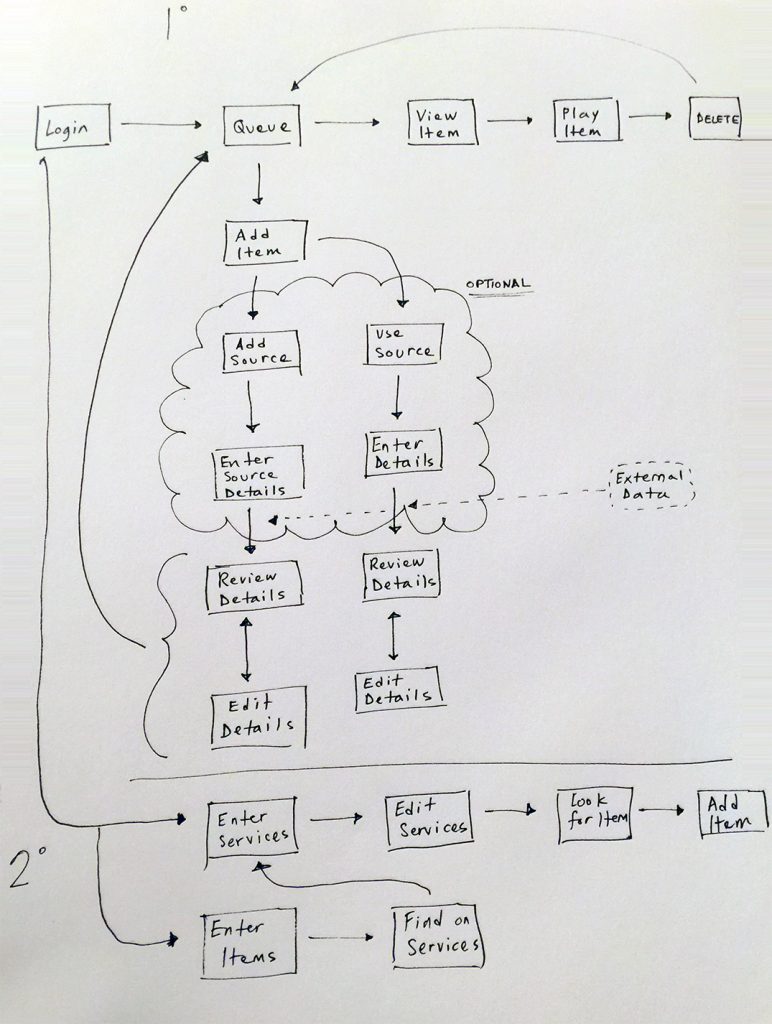 1°
Login
Queue
View
Item
Play
Item
DELETE
Add
Item
OPTIONAL
Add
Source
Use
Source
Enter
Source
Details
Enter
Details
External
Data
Review
Details
Review
Details
Edit
Details
Edit
Details
2°
Enter
Services
Edit
Services
Look
for Item
Add
Item
Enter
Items
Find on
Services